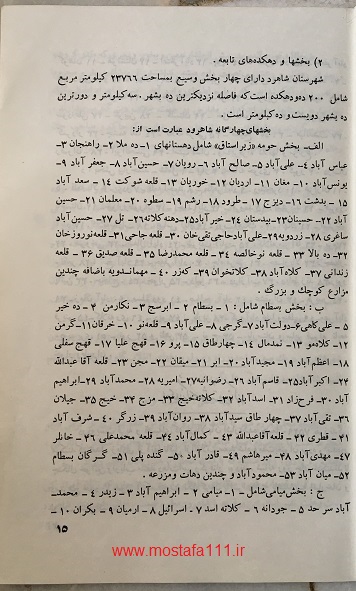 ۲) بخشها و دهکده‌های تابعه .
شهرستان شاهرود دارای چهار بخش وسیع بمساحت ۲۳۷۶۶ کیلومتر مربع
شامل ۲۰۰ ده‌ودهکده است‌که فاصله نزدیکترین ده بشهر . سه‌کیلومتر و دورترین
ده بشهر دویست و ده‌کیلومتر است .
بخشهای‌چهارگانه شاهرود عبارت است از:
الف- بخش حومه (زیراستاق) شامل دهستانهای ۱- ده ملا ۲- راهنجان ۳-
عباس آباد ۴- علی‌آباد ۵- صالح آباد ۶- رویان ۷- حسین‌آباد ۸- جعفر آباد ۹-
یونس‌آباد ۱۰- مغان ۱۱- اردیان ۱۲- خوریان ۱۳- قلعه شوکت ۱۴ - سعد آباد
۱۵ - بدشت ۱۶- دیزج ۱۷- طرود ۱۸- رشم ۱۹- سطوه ۲۰- معلمان ۲۱- حسین
آباد ۲۲- حسینان ۲۳- بیدستان ۲۴- خیرآباد ۲۵- دهنه‌کلاته ۲۶- تل ۲۷- حسین‌آباد
ساغری ۲۸- زردویه ۲۹- علی‌آباد حاجی‌تقی‌خان ۳۰- قلعه‌حاجی ۳۱- قلعه‌نوروزخان
۳۲- ده بالا ۳۳ - قلعه نوخالصه ۳۴ - قلعه محمدرضا ۳۵ - قلعه صدیق ۳۶ - قلعه
زندانی ۳۷ - کلاه‌آباد ۳۸- کلاتخوران ۳۹- که‌زر ۴۰- مهماندویه باضافه چندین
مزارع کوچك و بزرگ .
ب : بخش بسطام شامل : ۱ - بسطام ۲ - ابرسج ۳ - نکارمن ۴ - ده خیر
۵ - علی‌کاهی ۶- دولت‌آباد ۷- گرجی ۸- علی‌آباد ۹- قلعه‌نو ۱۰- خرقان ۱۱- گرمن
۱۲- کلامو ۱۳- نمدمال ۱۴- چهارطاق ۱۵- پرو ۱۶- قهج علیا ۱۷- قهج سفلی
۱۸- اعظم آباد ۱۹- مجیدآباد ۲۰- ابر ۲۱- میقان ۲۲- مجن ۲۳- قلعه آقاعبدالله
۲۴- اکبرآباد ۲۵- قاسم آباد ۲۶- رضوانیه ۲۷- امیریه ۲۸- محمدآباد ۲۹- ابراهیم
آباد ۳۰- فرح‌زاد ۳۱- اسدآباد ۳۲- کلاته‌خیج ۳۳- مزج ۳۴- خیج ۳۵- جیلان
۳۶- تقی‌آباد ۳۷- چهارطاق سیدآباد ۳۸- روان‌آباد ۳۹- زرگر ۴۰- شرف آباد
۴۱ - قطری ۴۲ - قلعه‌آقاعبدالله ۴۳ - کمال‌آباد ۴۴- قلعه محمدعلی ۴۶- خانلر
۴۷- مهدی‌آباد ۴۸- میرهاشم ۴۹- قادر آباد ۵۰- گنده پلی ۵۱- گسرگان بسطام
۵۲- میان آباد ۵۳- محمودآباد و چندین دهات و مزرعه .
ج : بخش‌میامی‌شامل - ۱- میامی ۲ - ابراهیم آباد ۳ - زیدر ۴ - محمد-
آباد سر حد ۵ - جودانه ۶ - کلاته اسد ۷- اسرائیل ۸ - ارمیان ۹ - بکران ۱۰ -
۱۵
www.mostafa111.ir